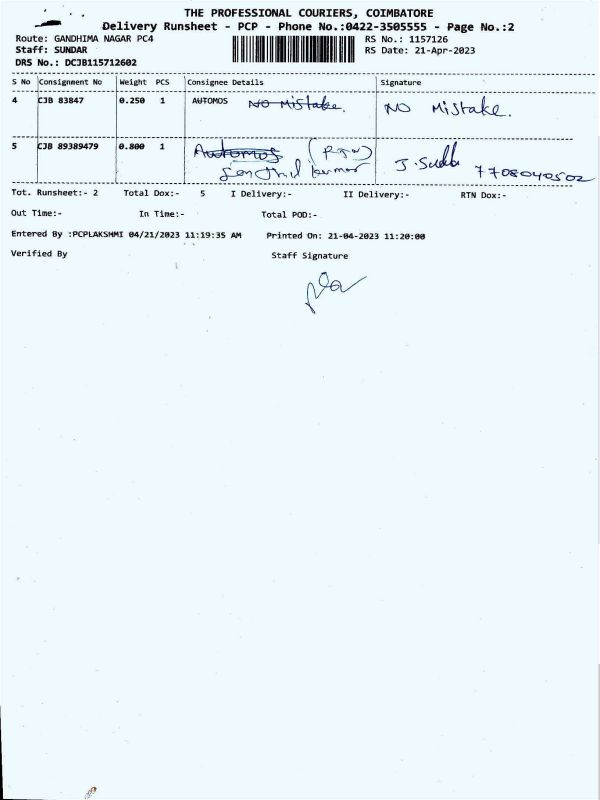 THE PROFESSIONAL COURIERS, COIMBATORE
Delivery Runsheet - PCP - Phone No.:0422-3505555 - Page No.:2
Route: GANDHIMA NAGAR PC4 RS No.: 1157126
Staff: SUNDAR RS Date: 21-Apr-2023
DRS No.: DCJB115712602
S No Consignment No Weight PCS Consignee Details Signature
4 CJB 83847 0.250 1 AUTOMOS No Mistake. NO Mistake.
5 CJB 89389479 0.800 1 Automos
Senthil kumar 7708040502
Tot. Runsheet:- 2 Total Dox:- 5 I Delivery:- II Delivery:- RTN Dox:-
Out Time:- In Time:- Total POD:-
Entered By :PCPLAKSHMI 04/21/2023 11:19:35 AM Printed On: 21-04-2023 11:20:00
Verified By Staff Signature